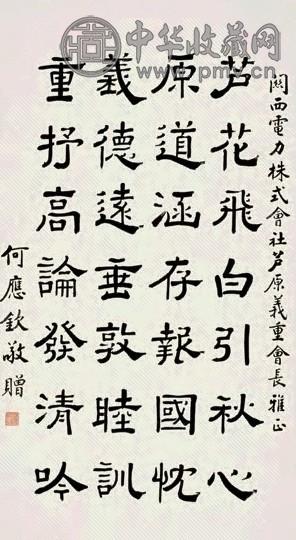 中华收藏网
關西電力株式會社芦原義重會長雅正
芦花飛白引秋心
原道涵存報國忱
義德遠垂敦睦訓
重抒高論發清吟
何應欽敬贈